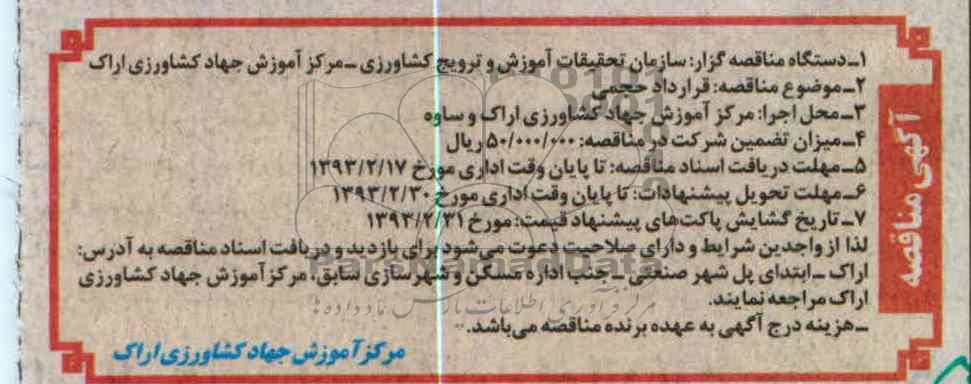 آگهی مناقصه
۱ـ دستگاه مناقصه گزار: سازمان تحقیقات آموزش و ترویج کشاورزی ـ مرکز آموزش جهاد کشاورزی اراک
۲ـ موضوع مناقصه: قرارداد حجمی
۳ـ محل اجرا: مرکز آموزش جهاد کشاورزی اراک و ساوه
۴ـ میزان تضمین شرکت در مناقصه: ۵۰/۰۰۰/۰۰۰ ریال
۵ـ مهلت دریافت اسناد مناقصه: تا پایان وقت اداری مورخ ۱۳۹۳/۲/۱۷
۶ـ مهلت تحویل پیشنهادات: تا پایان وقت اداری مورخ ۱۳۹۳/۲/۳۰
۷ـ تاریخ گشایش پاکت‌های پیشنهاد قیمت: مورخ ۱۳۹۳/۲/۳۱
لذا از واجدین شرایط و دارای صلاحیت دعوت می‌شود برای بازدید و دریافت اسناد مناقصه به آدرس:
اراک ـ ابتدای پل شهر صنعتی ـ جنب اداره مسکن و شهرسازی سابق، مرکز آموزش جهاد کشاورزی
اراک مراجعه نمایند.
ـ هزینه درج آگهی به عهده برنده مناقصه می‌باشد.
مرکز آموزش جهاد کشاورزی اراک
ParsNamadData
مرکز فرآوری اطلاعات پارس نماد داده ها